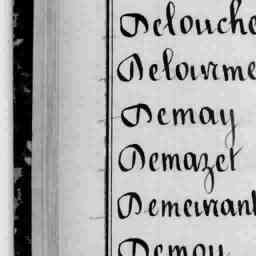 Delouche
Delourme
Demay
Demazet
Demeurant
Demou